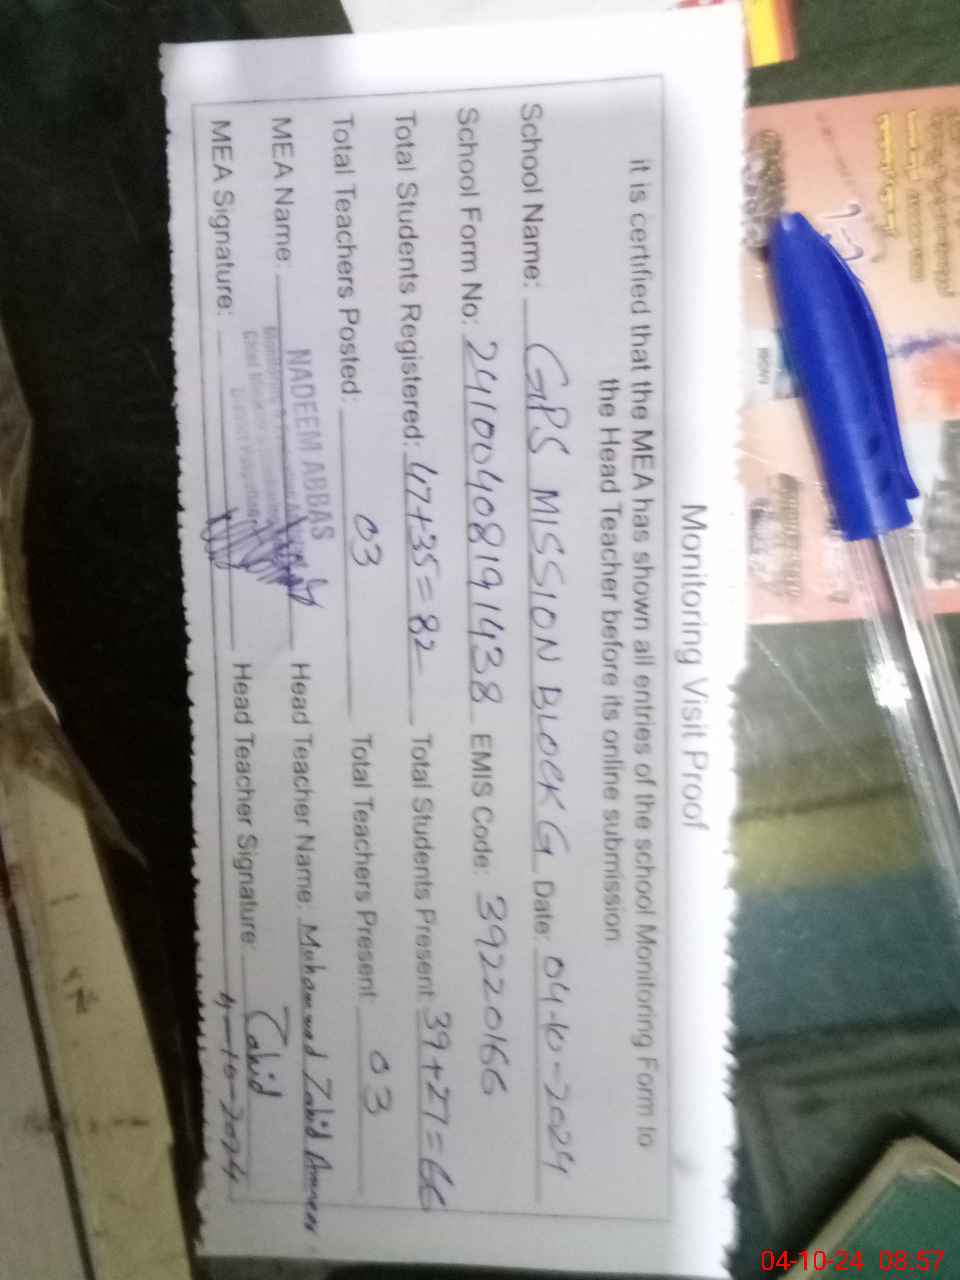 Monitoring Visit Proof
it is certified that the MEA has shown all entries of the school Monitoring Form to
the Head Teacher before its online submission
School Name: GPS MISSION BLOCK G Date: 04-10-2024
School Form No: 24100408191438 EMIS Code: 39220166
Total Students Registered: 47+35=82 Total Students Present 39+27=66
Total Teachers Posted: 03 Total Teachers Present 03
MEA Name: NADEEM ABBAS Head Teacher Name: Mohammad Zahid
MEA Signature: Head Teacher Signature: Zahid
4-10-2024
04-10-24 08:57